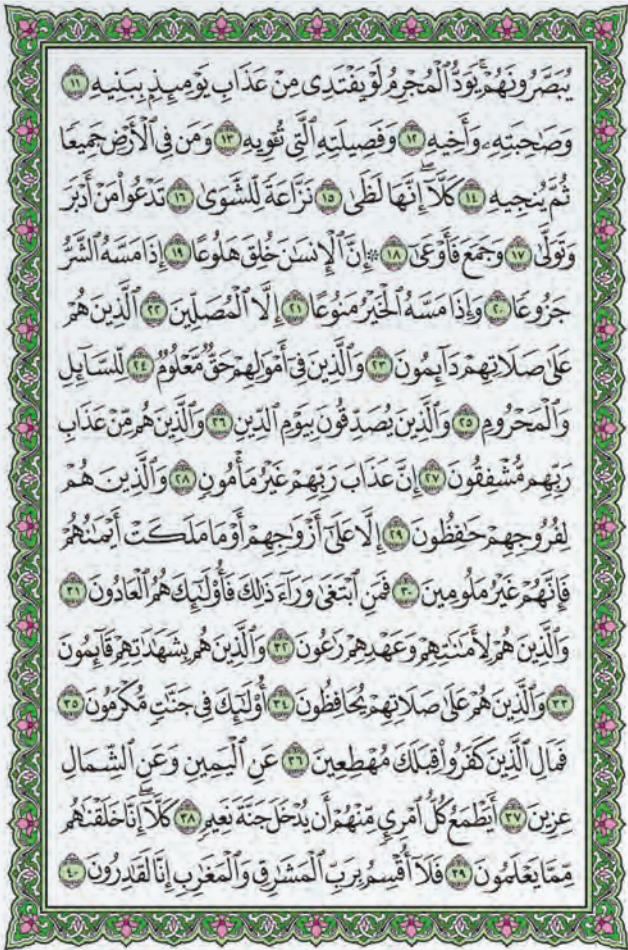 يُبَصَّرُونَهُمْۚ يَوَدُّ ٱلْمُجْرِمُ لَوْ يَفْتَدِى مِنْ عَذَابِ يَوْمِئِذِۭ بِبَنِيهِ ١١
وَصَٰحِبَتِهِۦ وَأَخِيهِ ١٢ وَفَصِيلَتِهِ ٱلَّتِى تُـْٔوِيهِ ١٣ وَمَن فِى ٱلْأَرْضِ جَمِيعًا
ثُمَّ يُنجِيهِ ١٤ كَلَّآۖ إِنَّهَا لَظَىٰ ١٥ نَزَّاعَةً لِّلشَّوَىٰ ١٦ تَدْعُوا۟ مَنْ أَدْبَرَ
وَتَوَلَّىٰ ١٧ وَجَمَعَ فَأَوْعَىٰٓ ١٨ ۞ إِنَّ ٱلْإِنسَٰنَ خُلِقَ هَلُوعًا ١٩ إِذَا مَسَّهُ ٱلشَّرُّ
جَزُوعًا ٢٠ وَإِذَا مَسَّهُ ٱلْخَيْرُ مَنُوعًا ٢١ إِلَّا ٱلْمُصَلِّينَ ٢٢ ٱلَّذِينَ هُمْ
عَلَىٰ صَلَاتِهِمْ دَآئِمُونَ ٢٣ وَٱلَّذِينَ فِىٓ أَمْوَٰلِهِمْ حَقٌّ مَّعْلُومٌ ٢٤ لِّلسَّآئِلِ
وَٱلْمَحْرُومِ ٢٥ وَٱلَّذِينَ يُصَدِّقُونَ بِيَوْمِ ٱلدِّينِ ٢٦ وَٱلَّذِينَ هُم مِّنْ عَذَابِ
رَبِّهِم مُّشْفِقُونَ ٢٧ إِنَّ عَذَابَ رَبِّهِمْ غَيْرُ مَأْمُونٍ ٢٨ وَٱلَّذِينَ هُمْ
لِفُرُوجِهِمْ حَٰفِظُونَ ٢٩ إِلَّا عَلَىٰٓ أَزْوَٰجِهِمْ أَوْ مَا مَلَكَتْ أَيْمَٰنُهُمْ
فَإِنَّهُمْ غَيْرُ مَلُومِينَ ٣٠ فَمَنِ ٱبْتَغَىٰ وَرَآءَ ذَٰلِكَ فَأُو۟لَٰٓئِكَ هُمُ ٱلْعَادُونَ ٣١
وَٱلَّذِينَ هُمْ لِأَمَٰنَٰتِهِمْ وَعَهْدِهِمْ رَٰعُونَ ٣٢ وَٱلَّذِينَ هُم بِشَهَٰدَٰتِهِمْ قَآئِمُونَ
٣٣ وَٱلَّذِينَ هُمْ عَلَىٰ صَلَاتِهِمْ يُحَافِظُونَ ٣٤ أُو۟لَٰٓئِكَ فِى جَنَّٰتٍ مُّكْرَمُونَ ٣٥
فَمَالِ ٱلَّذِينَ كَفَرُوا۟ قِبَلَكَ مُهْطِعِينَ ٣٦ عَنِ ٱلْيَمِينِ وَعَنِ ٱلشِّمَالِ
عِزِينَ ٣٧ أَيَطْمَعُ كُلُّ ٱمْرِئٍ مِّنْهُمْ أَن يُدْخَلَ جَنَّةَ نَعِيمٍ ٣٨ كَلَّآۖ إِنَّا خَلَقْنَٰهُم
مِّمَّا يَعْلَمُونَ ٣٩ فَلَآ أُقْسِمُ بِرَبِّ ٱلْمَشَٰرِقِ وَٱلْمَغَٰرِبِ إِنَّا لَقَٰدِرُونَ ٤٠